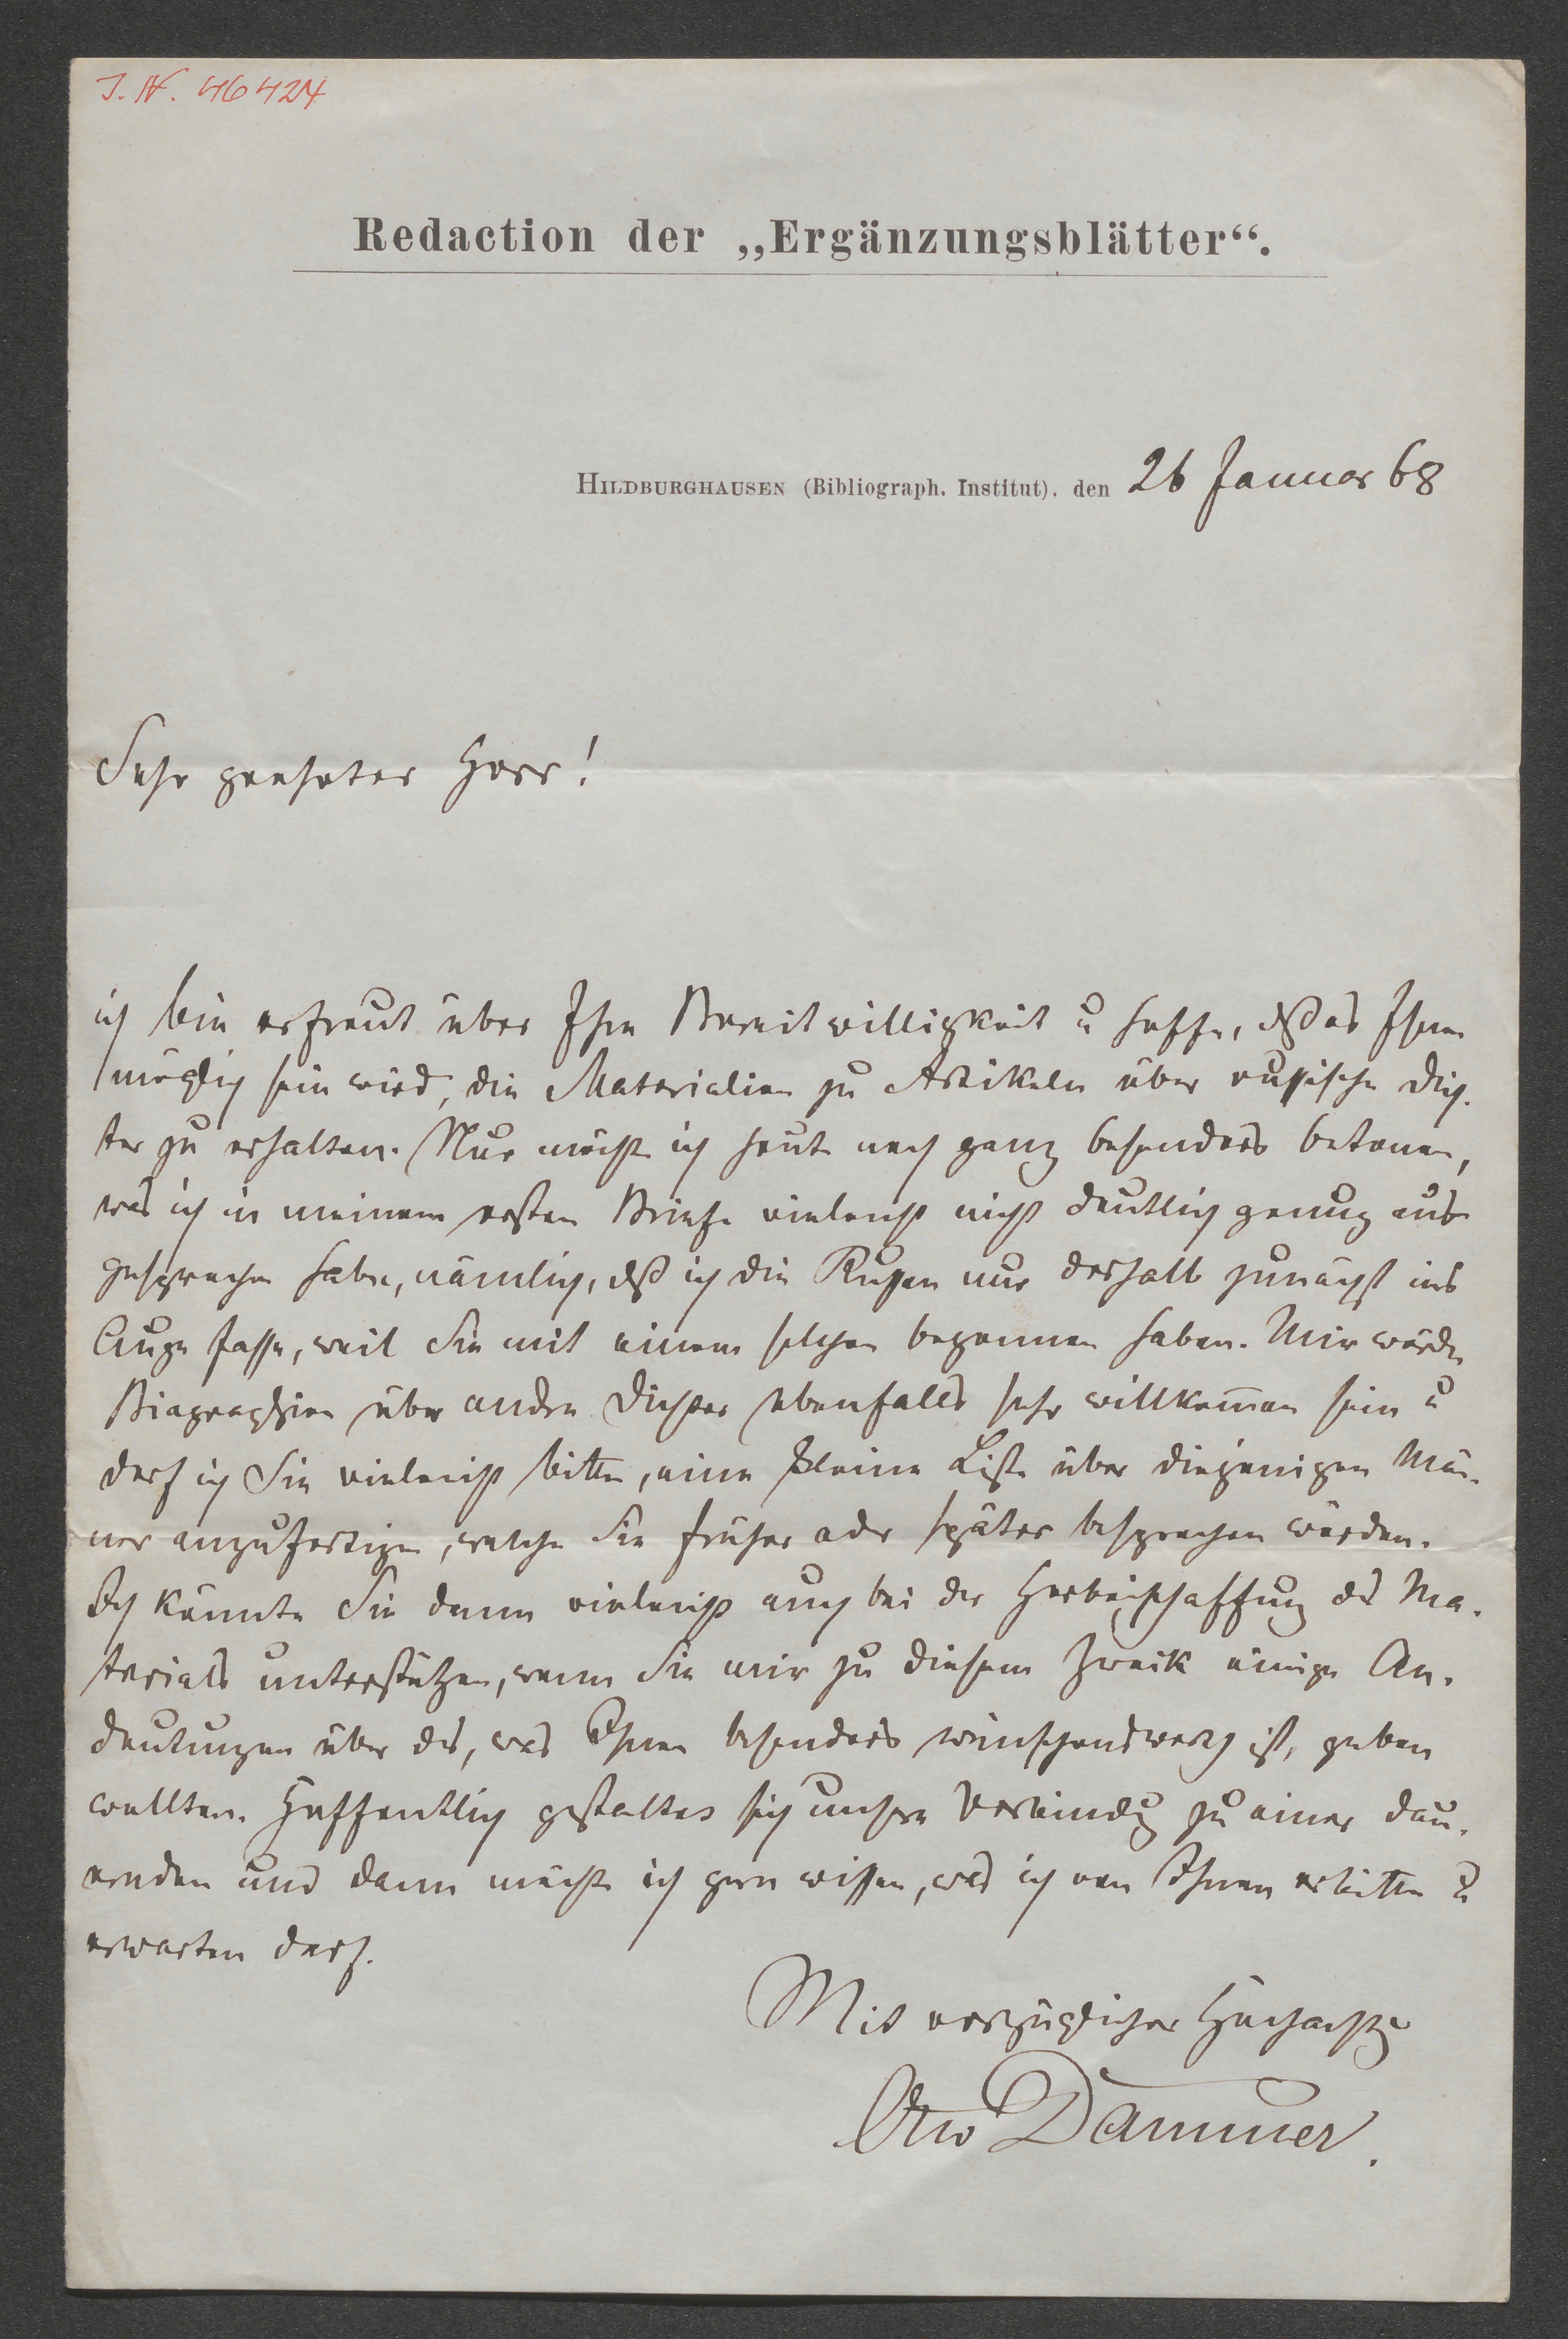 J. N. 46424
Redaction der „Ergänzungsblätter“.
HILDBURGHAUSEN (Bibliograph. Institut), den 26 Januar 68
Sehr geehrter Herr!
ich bin erfreut über Ihre Bereitwilligkeit u hoffe, dß es Ihnen
möglich sein wird, die Materialien zu Artikeln über russische Dich-
ter zu erhalten. Nur möchte ich heute noch ganz besonders betonen,
was ich in meinem ersten Briefe vieleicht nicht deutlich genug aus
gesprochen habe, nämlich, dß ich die Russen nur deshalb zunächst ins
Auge fasse, weil Sie mit einem solchen begonnen haben. Mir würden
Biographien über andre Dichter ebenfalls sehr willkom̄en sein u
darf ich Sie vieleicht bitten, eine kleine Liste über diejenigen Män-
ner anzufertigen, welche Sie früher oder später besprechen würden.
Ich könnte Sie dann vieleicht auch bei der Herbeischaffung des Ma-
terials unterstützen, wenn Sie mir zu diesem Zweck einige An-
deutungen über das, was Ihnen besonders wünschenswerth ist, geben
wollten. Hoffentlich gestaltet sich unsere Verbindung zu einer dau-
ernden und dann möchte ich gern wissen, was ich von Ihnen erbitten u
erwarten darf.
Mit vorzüglicher Hochachtg
Otto Dammer.